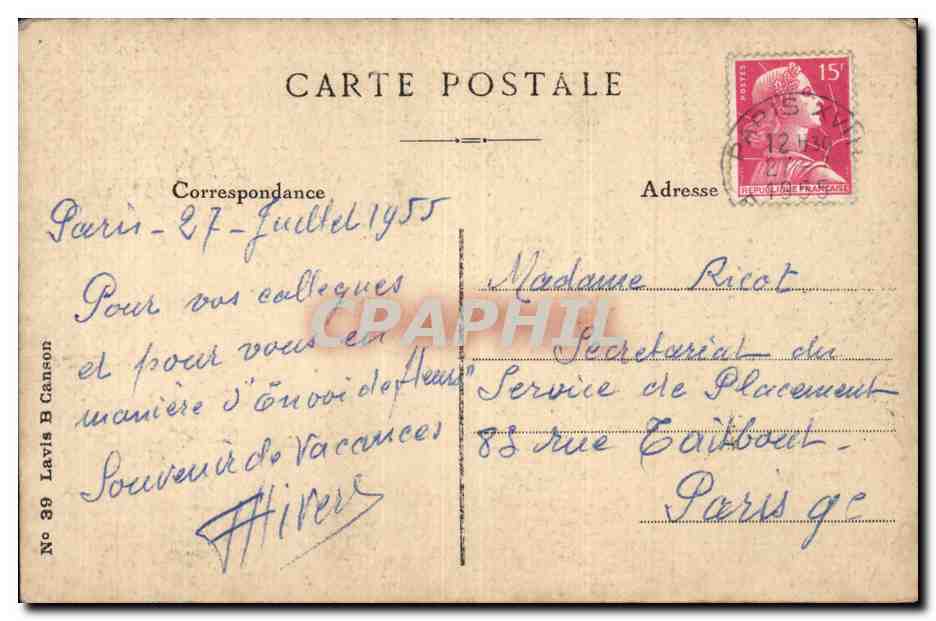 CARTE POSTALE
POSTES
15F
PARIS XVII
12H30
1955
REPUBLIQUE FRANÇAISE
Correspondance
Adresse
Paris - 27 - Juillet 1955
Pour vos collegues
et pour vous en
manière d'"Envoi de fleurs"
Souvenir de Vacances
Madame Ricot
Secretariat du
Service de Placement
83 rue Taitbout
Paris 9e
No 39 Lavis B Canson
CPAPHIL